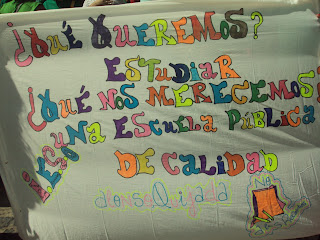 ¿QUÉ QUEREMOS?
ESTUDIAR
¿QUÉ NOS MERECEMOS?
UNA ESCUELA PÚBLICA
DE CALIDAD
alonso Quijada
NO